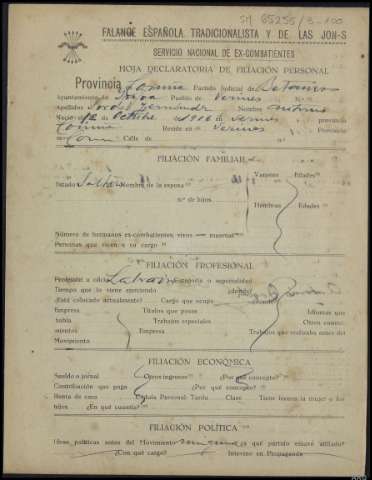 SM 65255/3-100
FALANGE ESPAÑOLA TRADICIONALISTA Y DE LAS JON-S
SERVICIO NACIONAL DE EX-COMBATIENTES
HOJA DECLARATORIA DE FILIACIÓN PERSONAL
Provincia Coruña Partido Judicial de Betanzos
Ayuntamiento de Pueblo de
Apellidos Fernández Nombre Antonio
Nació el 12 de Octubre de 1916 en provincia
Coruña Reside en
Calle de
FILIACIÓN FAMILIAR
Varones Edades
Estado Soltero Nombre de la esposa
n.º de hijos
Hembras Edades
Número de hermanos ex-combatientes, vivos muertos
Personas que viven a su cargo
FILIACIÓN PROFESIONAL
Profesión u oficio Labrador Categoría o especialidad
Tiempo que lo viene ejerciendo ¿dónde?
¿Está colocado actualmente? Cargo que ocupa
Empresa Títulos que posee Idiomas que
habla Trabajos especiales Otros conoc.
Empresa Trabajos que realizaba antes del
Movimiento
FILIACIÓN ECONÓMICA
Sueldo o jornal Otros ingresos ¿Por qué concepto?
Contribución que paga ¿Por qué concepto?
Renta de casa Cédula Personal Tarifa Clase Tiene bienes la mujer o los
hijos ¿En qué cuantía?
FILIACIÓN POLÍTICA
Ideas políticas antes del Movimiento ninguna ¿a qué partido estuvo afiliado?
¿Con qué cargo? Intervino en Propaganda